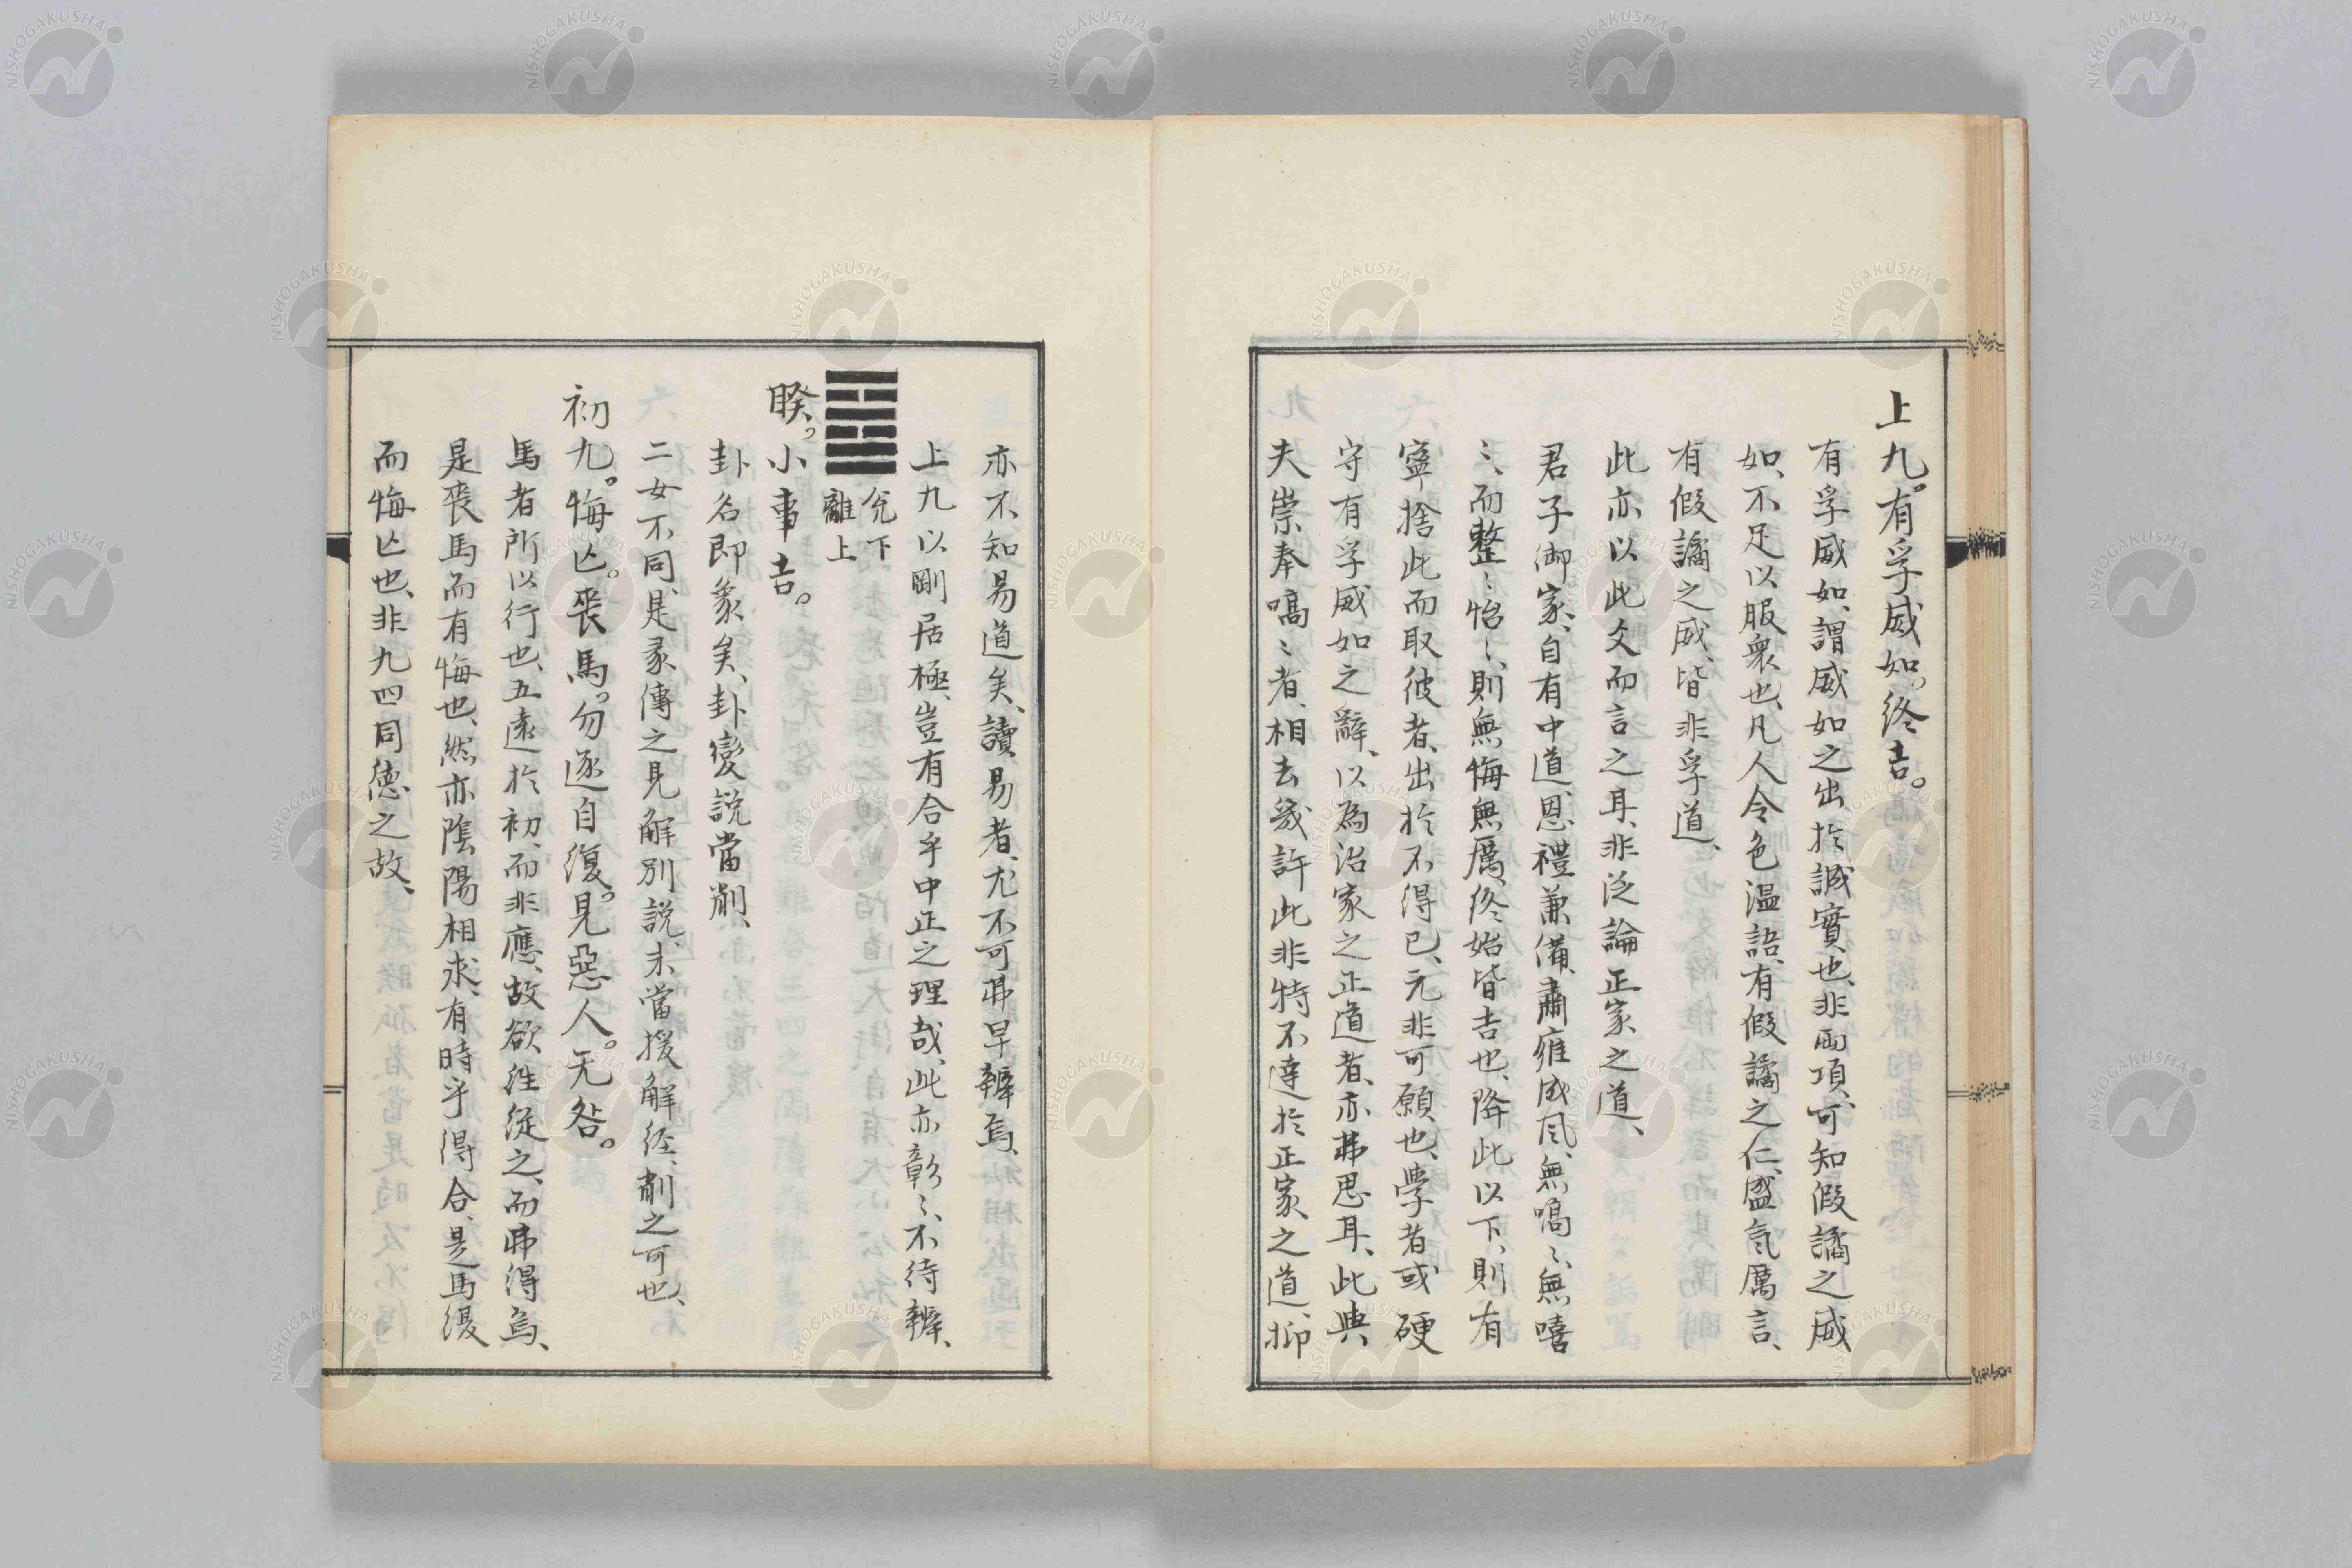 上九。有孚威如。終吉。
有孚威如、謂威如之出於誠實也、非両項、可知假譎之威
如、不足以服衆也、凡人令色温語、有假譎之仁、盛氣厲言、
有假譎之威、皆非孚道、
此亦以此爻而言之耳、非泛論正家之道、
君子御家、自有中道、恩禮兼備、肅雍成風、無嗃〻、無嘻
〻、而整〻怡〻、則無悔無厲、終始皆吉也、降此以下、則有
寧捨此而取彼者、出於不得已、元非可願也、學者或硬
守有孚威如之辭、以為治家之正道者、亦弗思耳、此與
夫崇奉嗃〻者、相去幾許、此非特不達於正家之道、抑
亦不知易道矣、讀易者、尤不可弗早辨焉、
上九以剛居極、豈有合乎中正之理哉、此亦彰〻、不待辨、
兌下
離上
睽。小事吉。
卦名即象矣、卦變説當削、
二女不同、是彖傳之見解別説、未當援解經、削之可也、
初九。悔亾。喪馬。勿逐自復。見惡人。无咎。
馬者所以行也、五遠於初、而非應、故欲往從之、而弗得焉、
是喪馬而有悔也、然亦陰陽相求、有時乎得合、是馬復
而悔亾也、非九四同德之故、
NISHOGAKUSHA